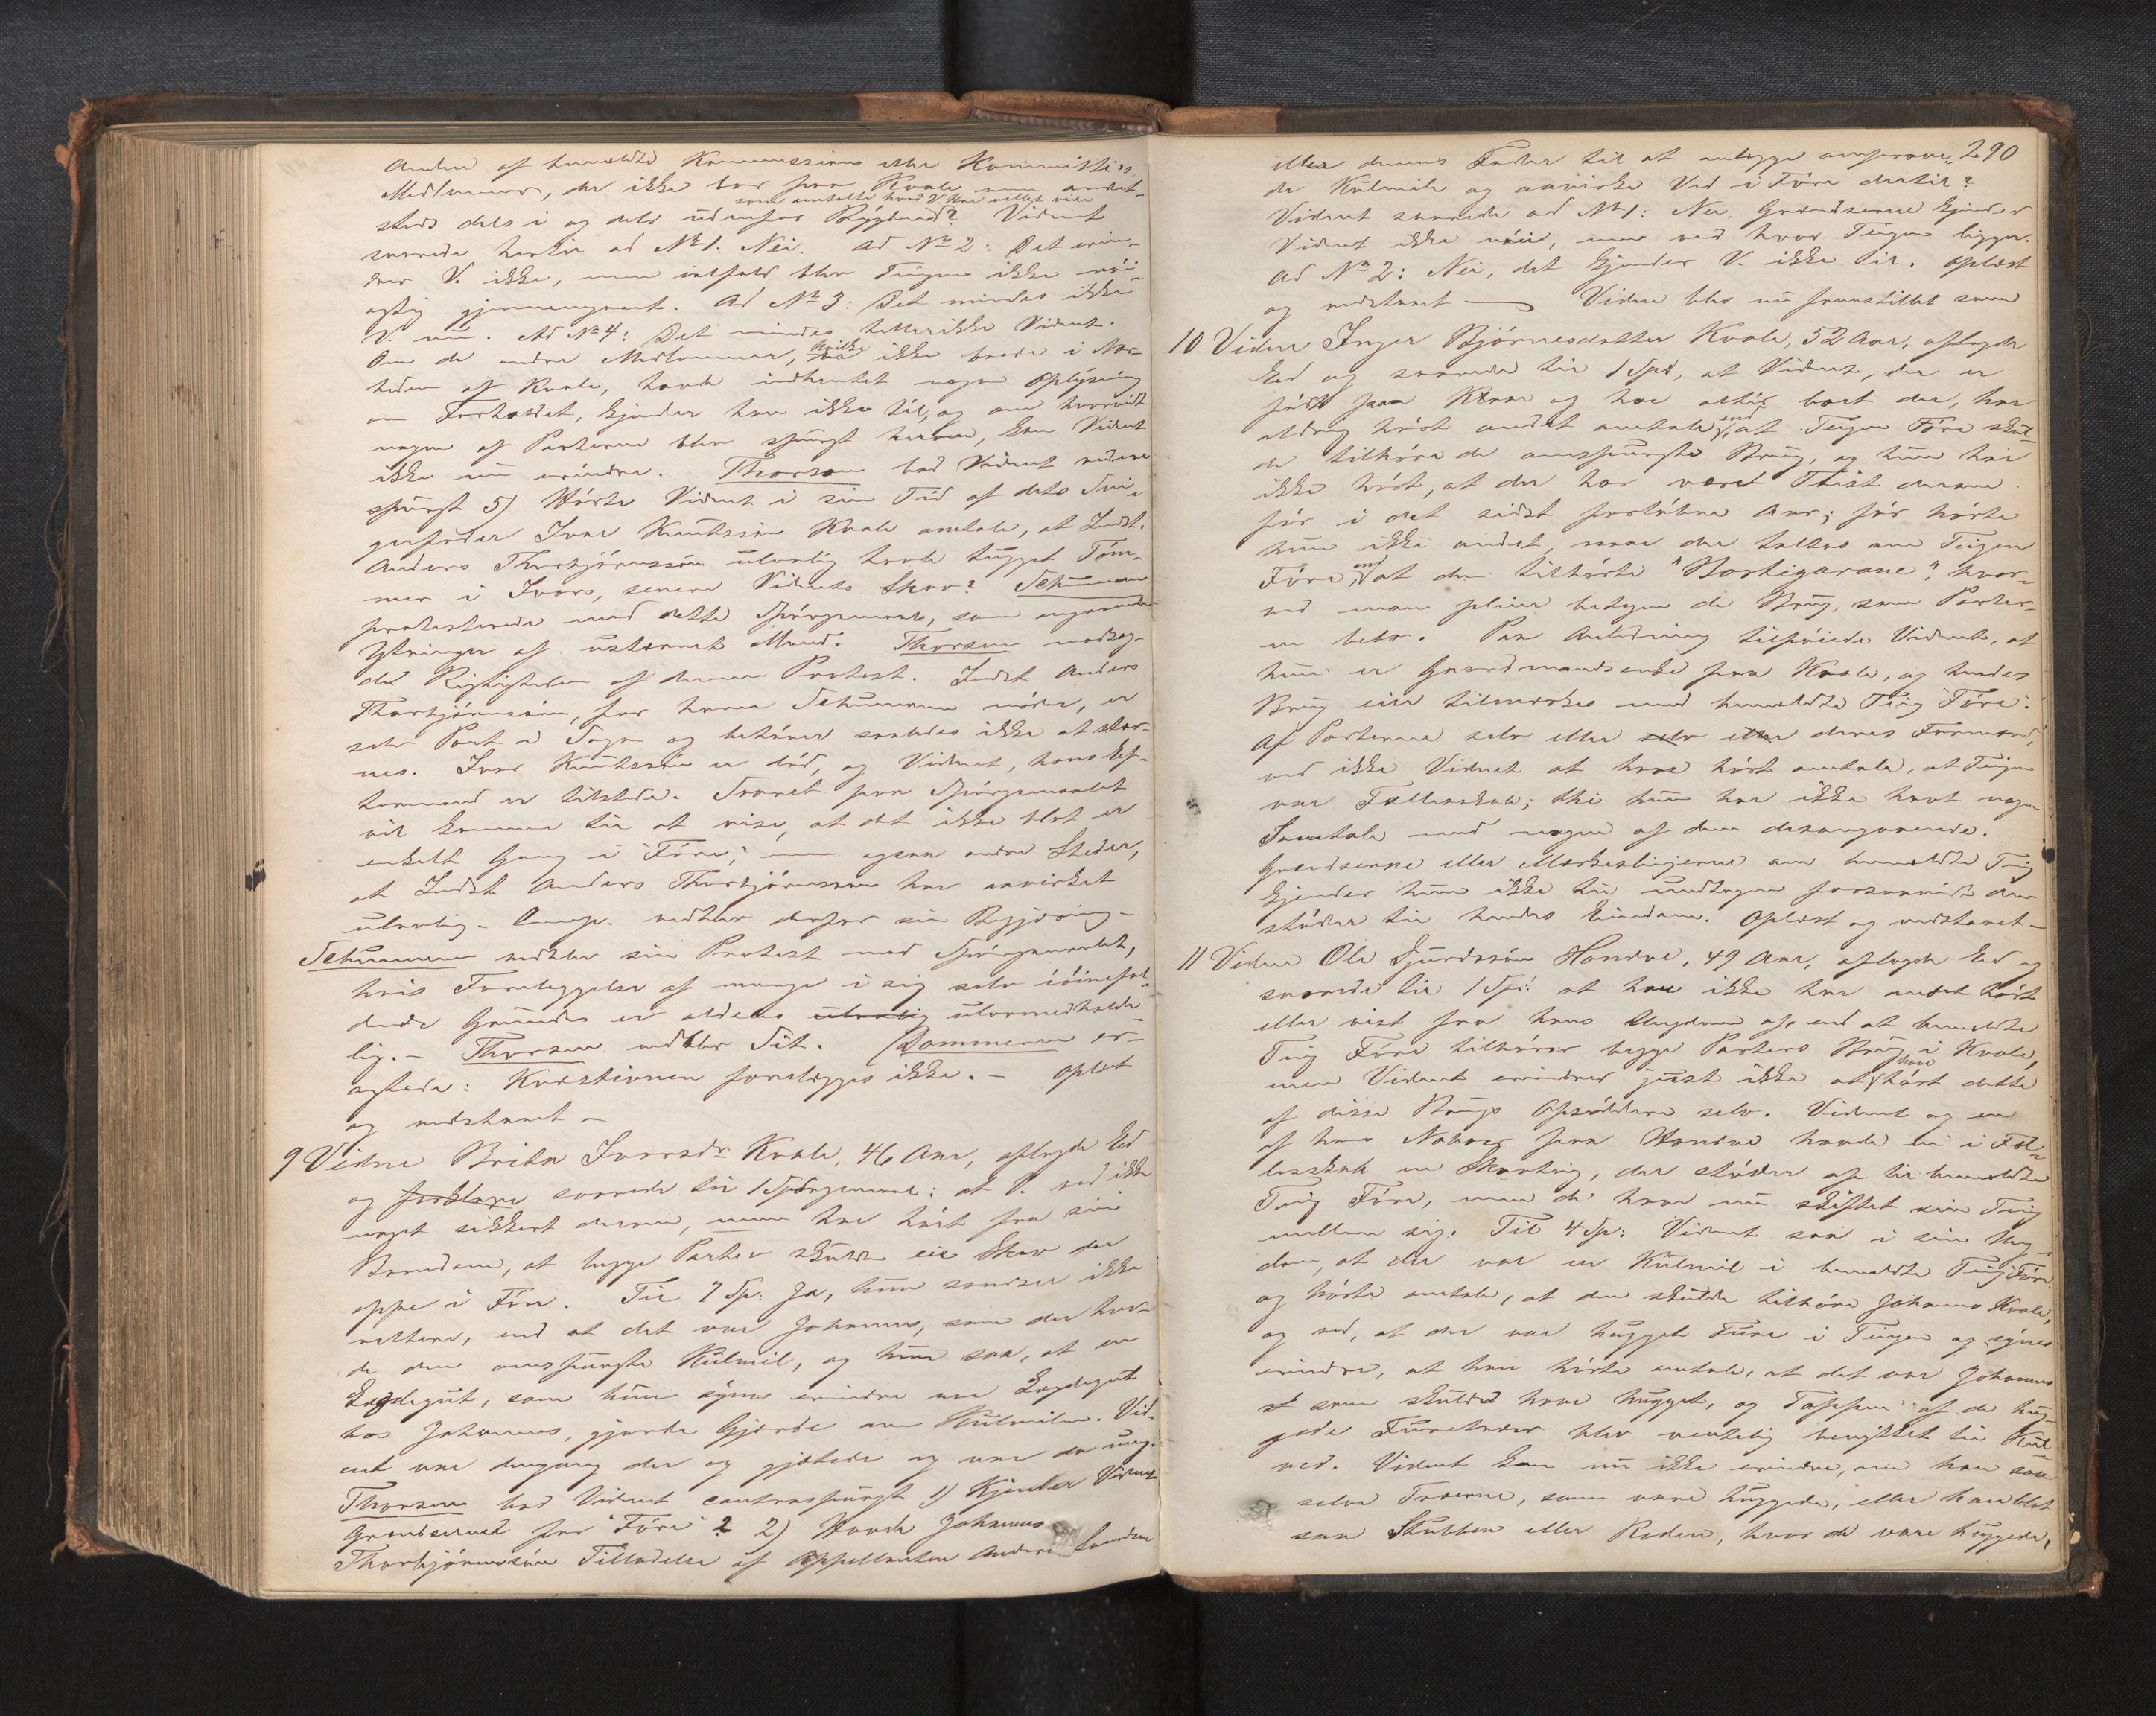 Anden af bemeldte Kommissions eller Kommittees
Medlemmer, der ikke bor paa Kvale men andet-
som antalte hvad V. har villet vise
steds dels i og dels udenfor Bygden? Vidnet
svarede hertil ad No 1. Nei. Ad No 2: Det erin-
drer V. ikke, men ialfald blev Teigen ikke nøi-
agtig gjennemgaaet. Ad No 3: Det mindes ikke
V. nu. Ad No 4: Det mindes hellerikke Vidnet.
Om de andre Medlemmer, hvilke ikke boede i Nær-
heden af Kvale, havde indhentet nogen Oplysning
om Forholdet, kjender han ikke til, og om hvorvidt
nogen af Parterne blev spurgt herom, kan Vidnet
ikke nu erindre. Thorsen bad Vidnet videre
spurgt 5) Hørte Vidnet i sin Tid af dets Svi-
gerfader Ivar Knutssøn Kvale omtale, at Indst.
Anders Thorbjørnssøn ulovlig havde hugget Tøm-
mer i Ivars, senere Vidnets Skov? Schumann
protesterede mod dette Spørgsmaal, som angaaende
Ytringer af ustevnet Mand. Thorsen modsag-
de Rigtigheden af denne Protest. Indst Anders
Thorbjørnssøn, for hvem Schumann møder, er
selv Part i Sagen og behøver saaledes ikke at stev-
nes. Ivar Knutssøn er død, og Vidnet, hans Ef-
termand er tilstede. Svaret paa Spørgsmaalet
vil komme til at vise, at det ikke blot er
enkelt Gang i "Føre", men ogsaa andre Steder,
at Indst Anders Thorbjørnssøn har avirket
ulovlig. Comp. vedblev derfor sin Begjæring.
Schumann vedblev sin Protest mod Spørgsmaalet,
hvis Forelæggelse af mange i sig selv iøinefal-
dende Grunde er aldeles ulovlig uformedholde-
lig. - Thorsen vedblev Sit. Dommeren er-
agtede: Kvæstionen forelægges ikke. - Oplæst
og vedstaaet -
9 Vidne Brita Ivarsdr Kvale, 46 Aar, aflagde Ed
og forklare svarede til 1 Spørgsmaal: at V. ved ikke
noget sikkert derom, men har hørt fra sin
Barndom, at begge Parter skulde eie Skov der
oppe i Føre. Til 7 Sp: Ja, hun sandser ikke
rettere, end at det var Johannes, som der hav-
de den omspurgte Kulmil, og hun saa, at en
Lægdegut, som hun synes erindre var Lægdegut
hos Johannes, gjorde Gjerde om Kulmilen. Vid-
net var dengang der og gjætede og var da ung.
Thorsen bad Vidnet contraspurgt 1) Kjender Vidnet
Grændserne for "Føre"? 2) Havde Johannes
Thorbjørnssøn Tilladelse af Appellanten Anders Sændsen
290
eller dennes Fader til at anlægge omspurg-
de Kulmile og avvirke Ved i Føre dertil?
Vidnet svarede ad No 1: Nei. Grændserne kjender
Vidnet ikke nøie, men ved hvor Teigen ligger.
Ad No 2: Nei, det kjender V. ikke til. Oplæst
og vedstaaet - Videre blev nu fremstillet som
10 Vidne Inger Bjørnesdatter Kvale, 52 Aar, aflagde
Ed og svarede til 1 Sp:, at Vidnet, der er
født paa Kvale og har altid boet der, har
aldrig hørt andet omtale, end at Teigen Føre skul-
de tilhøre de omspurgte Brug, og hun har
ikke hørt, at der har været Tvist derom
før i det sidst forløbne Aar; før hørte
hun ikke andet, naar der taltes om Teigen
Føre, end at den tilhørte "Nortigarane", hvor-
ved man pleier betegne de Brug, som Parter-
ne bebo. Paa Anledning tilføiede Vidnet, at
hun er Gaardmandsenke paa Kvale, og hendes
Brug eier tilmarkes med bemeldte Teig "Føre".
Af Parterne selv eller selv eller deres Formænd,
ved ikke Vidnet at have hørt omtale, at Teigen
var Fælleseskab; thi hun har ikke havt nogen
Samtale med nogen af dem desangaaende.
Grændserne eller Merkeslinjerne om bemeldte Teig
kjender hun ikke til undtagen forsaavidt den
støder til hendes Eiendom. Oplæst og vedstaaet -
11 Vidne Ole Sjurdssøn Handve, 49 Aar, aflagde Ed og
svarede til 1 Sp: at han ikke har andet hørt
eller vist fra hans Ungdom af, end at bemeldte
Teig Føre tilhører begge Parters Brug i Kvale,
men Vidnet erindrer just ikke at have hørt dette
af disse Brugs Opsiddere selv. Vidnet og en
af hans Naboer paa Handve havde ei i Fæl-
lesskab en Skovteig, der støder op til bemeldte
Teig Føre, men de have nu skiftet sin Teig
mellem sig. Til 4 Sp: Vidnet saa i sin Ung-
dom, at der var en Kulmil i bemeldte Teig Føre
og hørte omtale, at den skulde tilhøre Johannes Kvale,
og ved, at der var hugget Fure i Teigen og synes
erindre, at han hørte omtale, at det var Johannes
st som skulde have hugget, og Toppen af de hug-
gede Furetræer blev ventelig benyttet til Kul-
ved. Vidnet kan nu ikke erindre, om han saa
selve Træerne, som vare huggede, eller han blot
saa Stubben eller Roden, hvor de vare huggede,